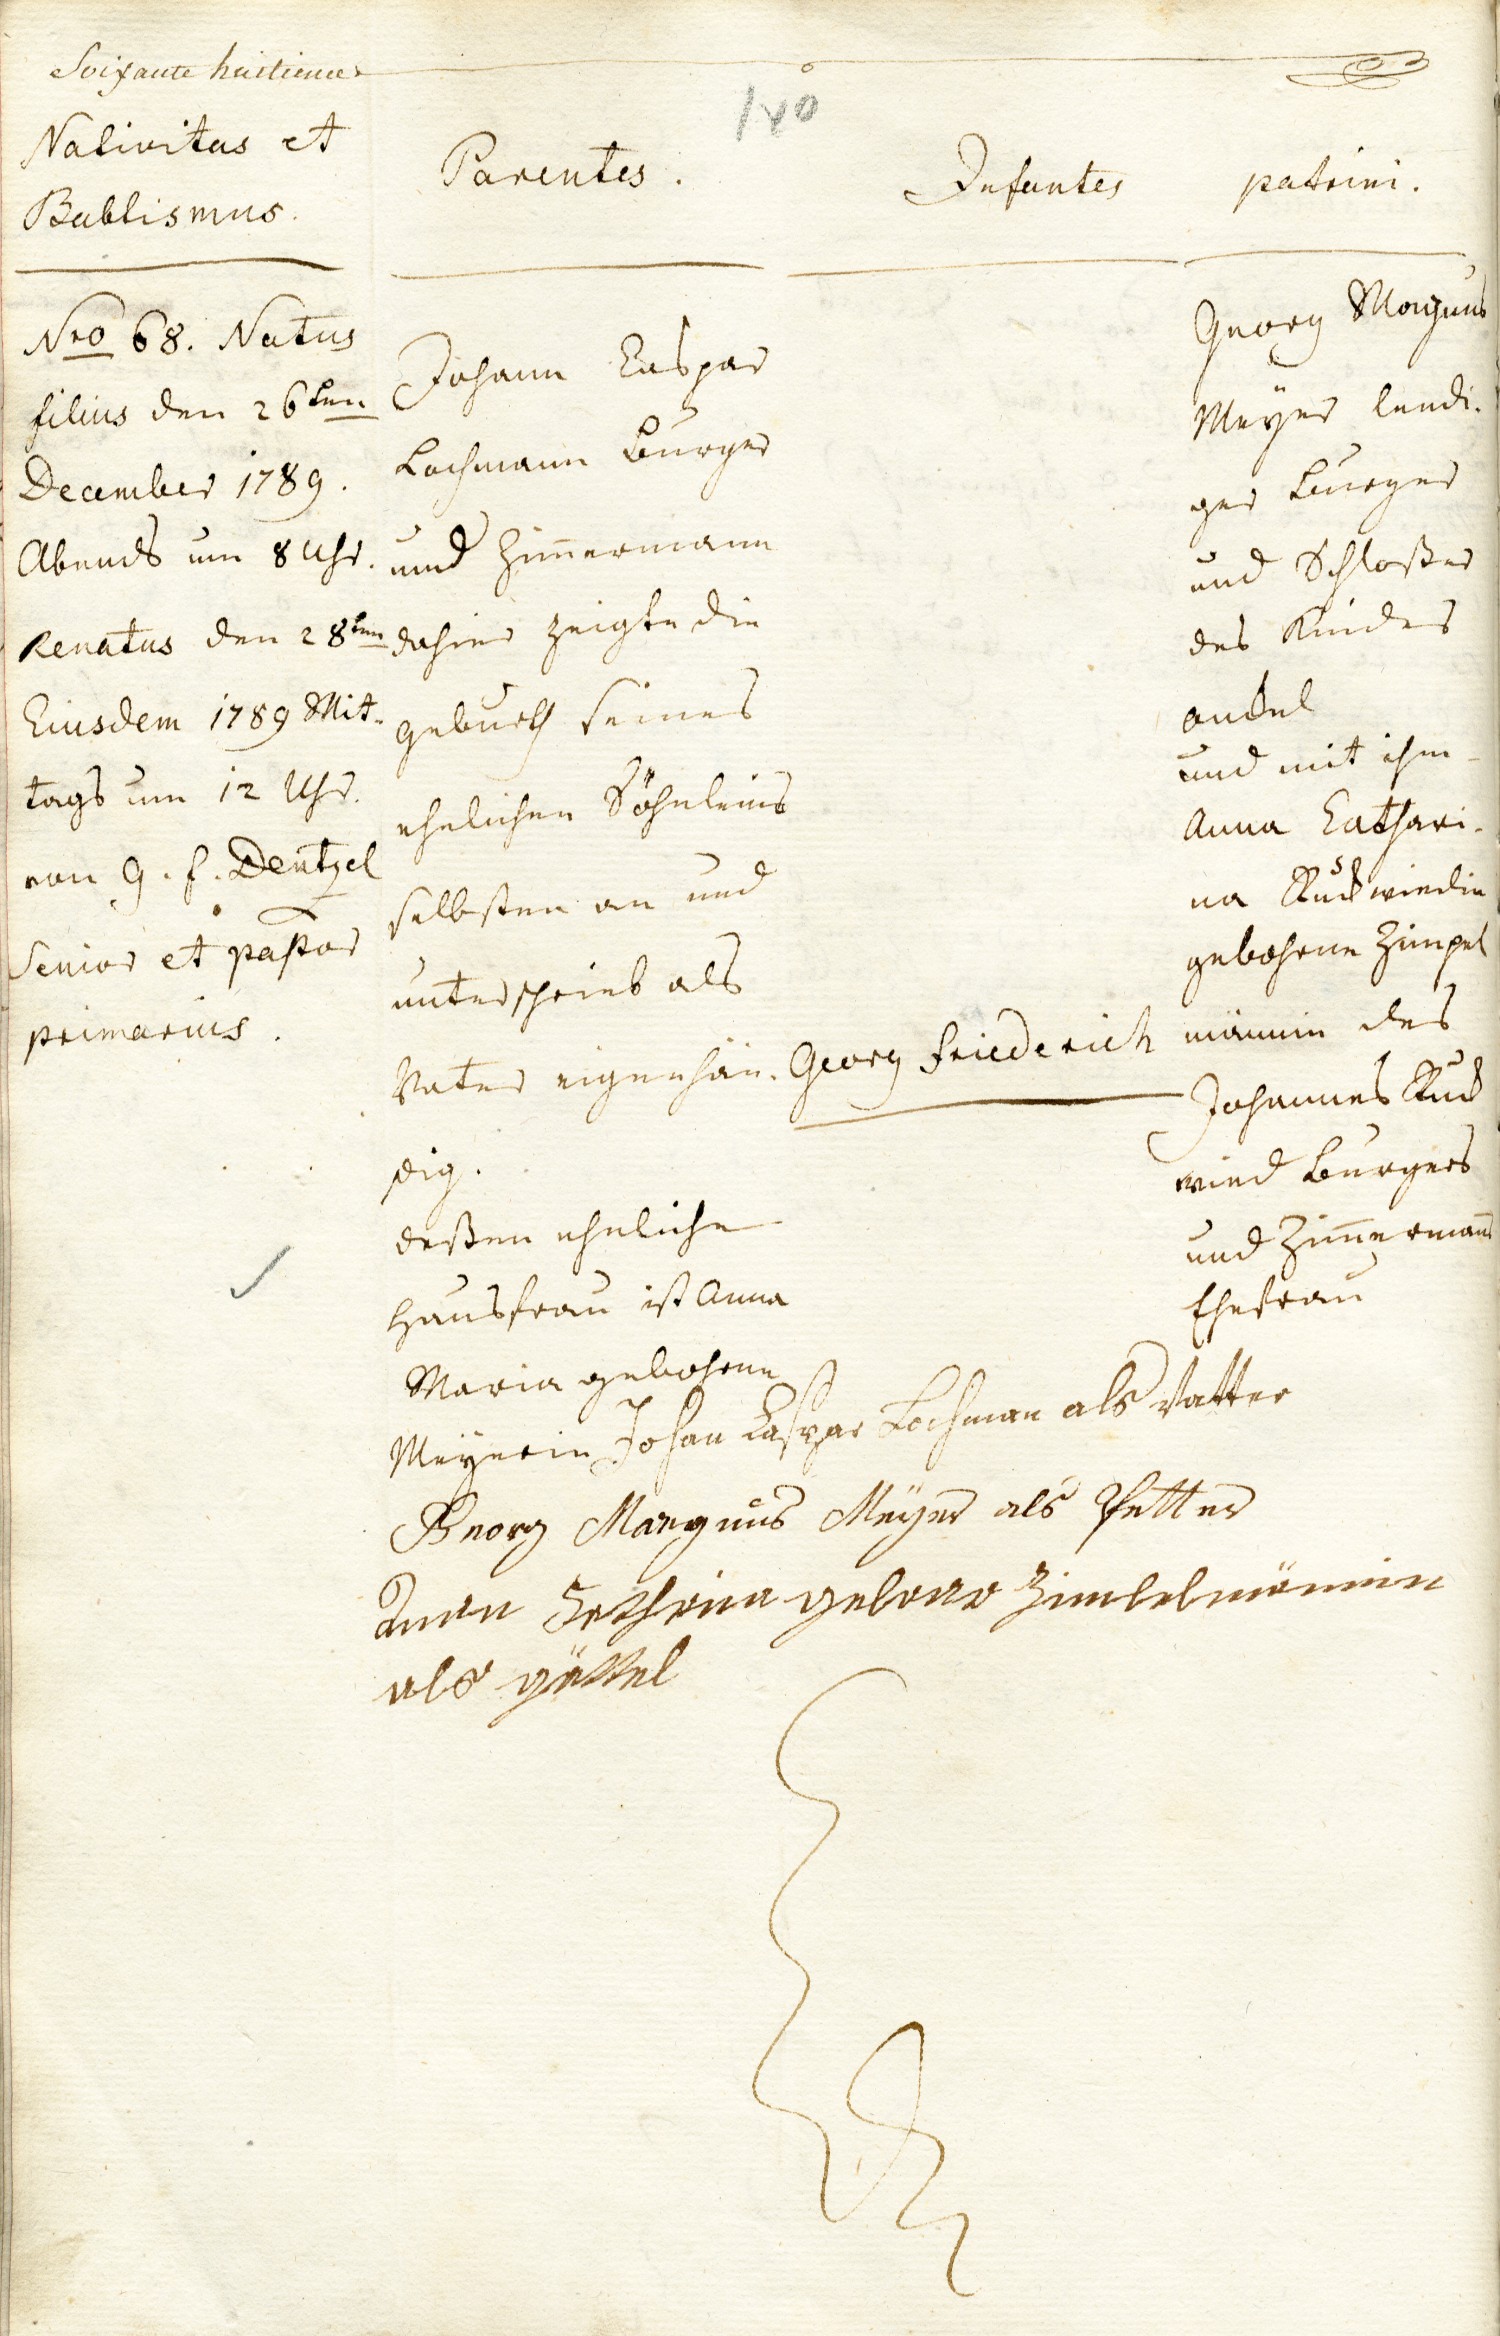 Soixante huitieme
140
Nativitas et
Babtismus.
Parentes.
Infantes
patrini.
Nro 68. Natus
filius den 26ten
December 1789.
Abends um 8 Uhr.
Renatus den 28ten
Eiusdem 1789 Mit-
tags um 12 Uhr.
von G. f. Dentzel
Senior et pastor
primarius.
Johann Caspar
Lochmann Burger
und Zimermann
dahier zeigte die
geburth seines
ehelichen Söhnleins
selbsten an und
unterschrieb als
Vater eigenhän-
dig.
deßen eheliche
Hausfrau ist Anna
Maria gebohrne
Meyerin
Georg Friederich
Georg Magnus
Meyer leedi-
ger Burger
und Schloßer
des Kindes
onckel
und mit ihm
Anna Cathari-
na Ruckwiedin
gebohrne Zimpel
männin des
Johannes Ruck
wied Burgers
und Zimermans
Ehefrau
Johan Casper Lochman als Vatter
Georg Magnus Meyer als Petter
Anna gebone Zimbelmännin
als göttel